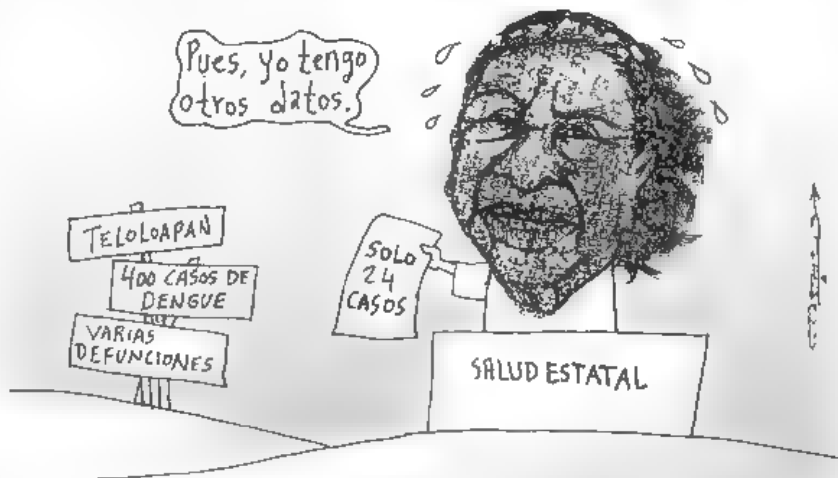 Pues, yo tengo
otros datos.
TELOLOAPAN
400 CASOS DE
DENGUE
VARIAS
DEFUNCIONES
SOLO
24
CASOS
SALUD ESTATAL